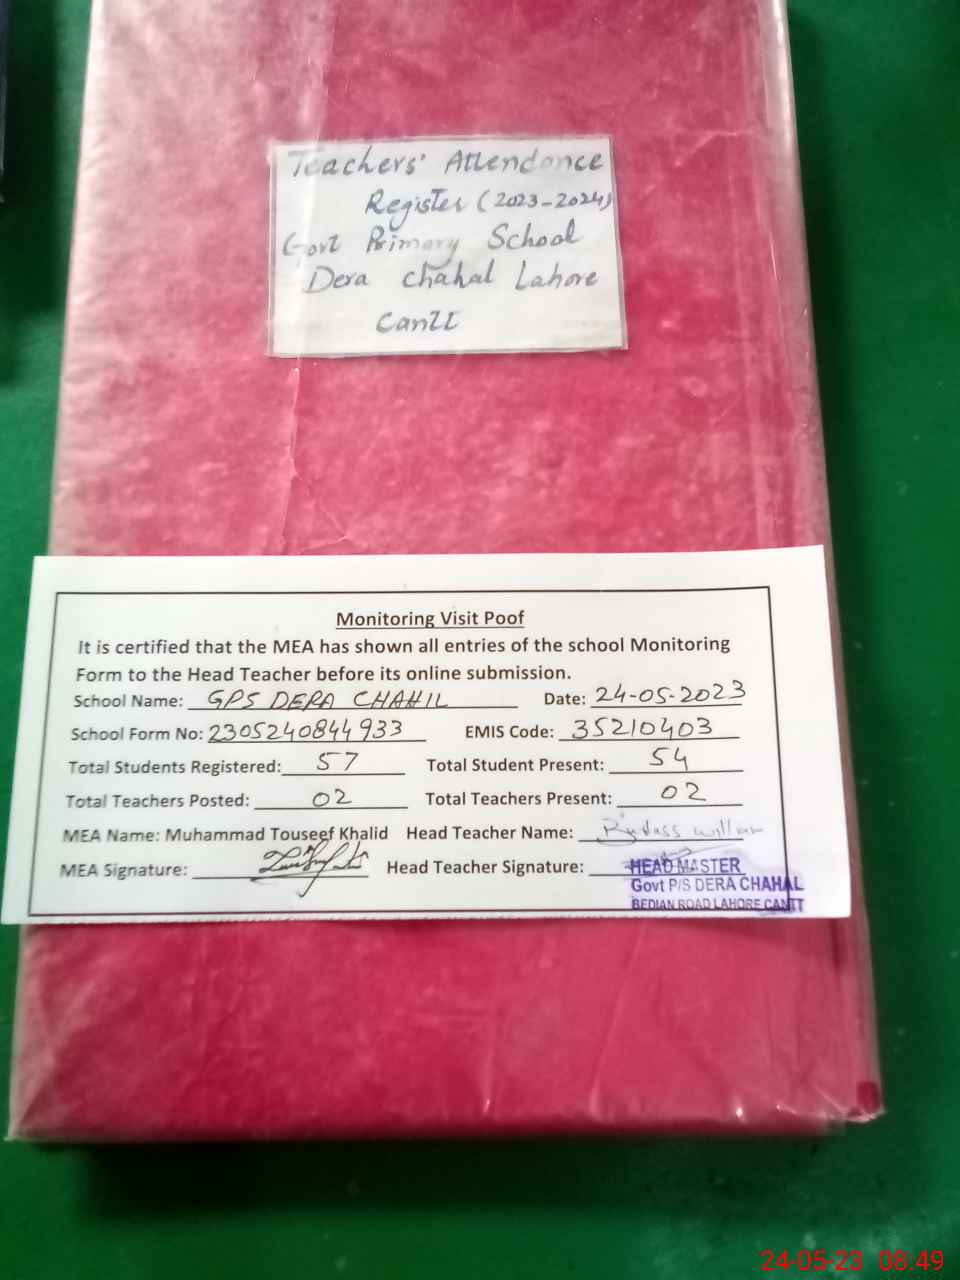 Teachers' Attendance
Register (2023-2024)
Govt Primary School
Dera chahal Lahore
Cantt
Monitoring Visit Poof
It is certified that the MEA has shown all entries of the school Monitoring
Form to the Head Teacher before its online submission.
School Name: GPS DERA CHAHIL Date: 24-05-2023
School Form No: 2305240844933 EMIS Code: 35210403
Total Students Registered: 57 Total Student Present: 54
Total Teachers Posted: 02 Total Teachers Present: 02
MEA Name: Muhammad Touseef Khalid Head Teacher Name: William
MEA Signature: Head Teacher Signature:
HEAD MASTER
Govt P/S DERA CHAHAL
BEDIAN ROAD LAHORE CANTT
24-05-23 08:49